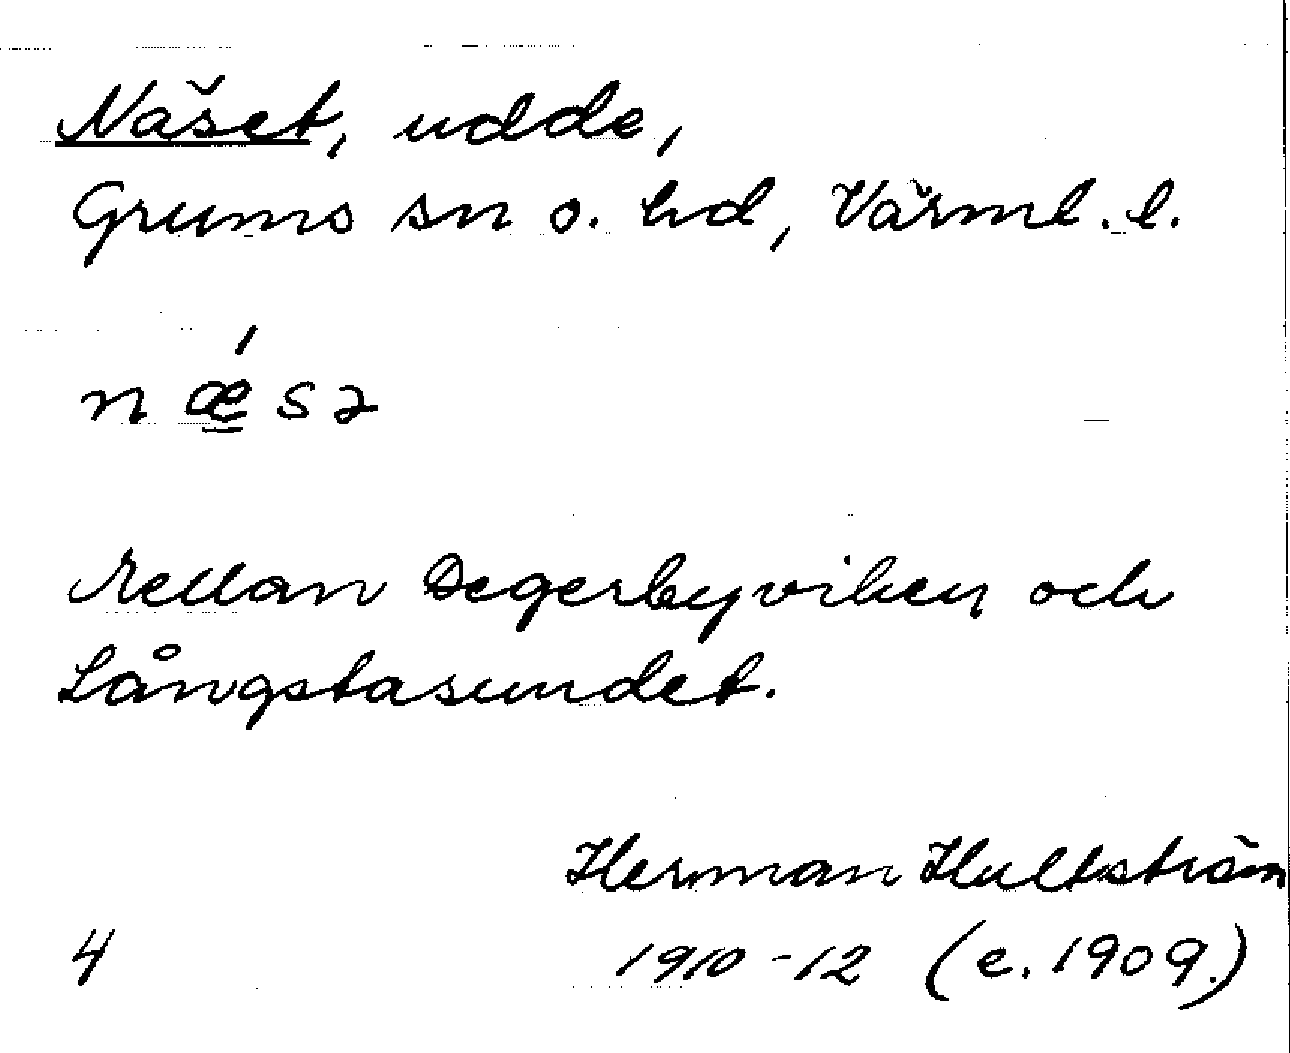 Näset, udde,
Grums sn o. hd, Värml. l.
nǽ̳sə
Mellan Segerbyviken och
Långstasundet.
Herman Hultström
4 1910-12 (e. 1909.)